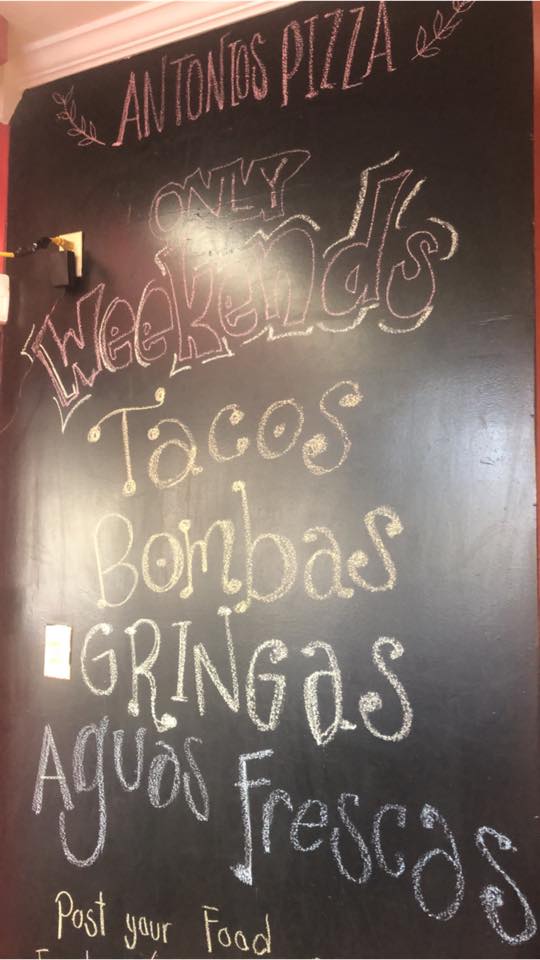 ANTONIOS PIZZA
ONLY
Weekends
Tacos
Bombas
GRINGAS
Aguas Frescas
Post your Food